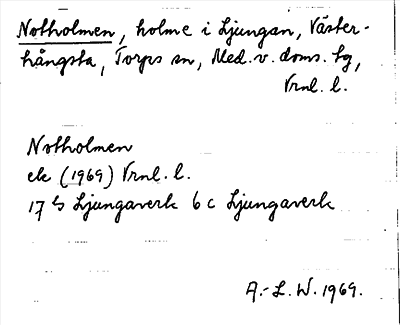 Notholmen, holme i Ljungan, Väster-
hångsta, Torps sn, Med. v. doms. tg,
Vrnl. l.
Notholmen
ek (1969) Vrnl. l.
17 G Ljungaverk 6 c Ljungaverk
A.-L. W. 1969.